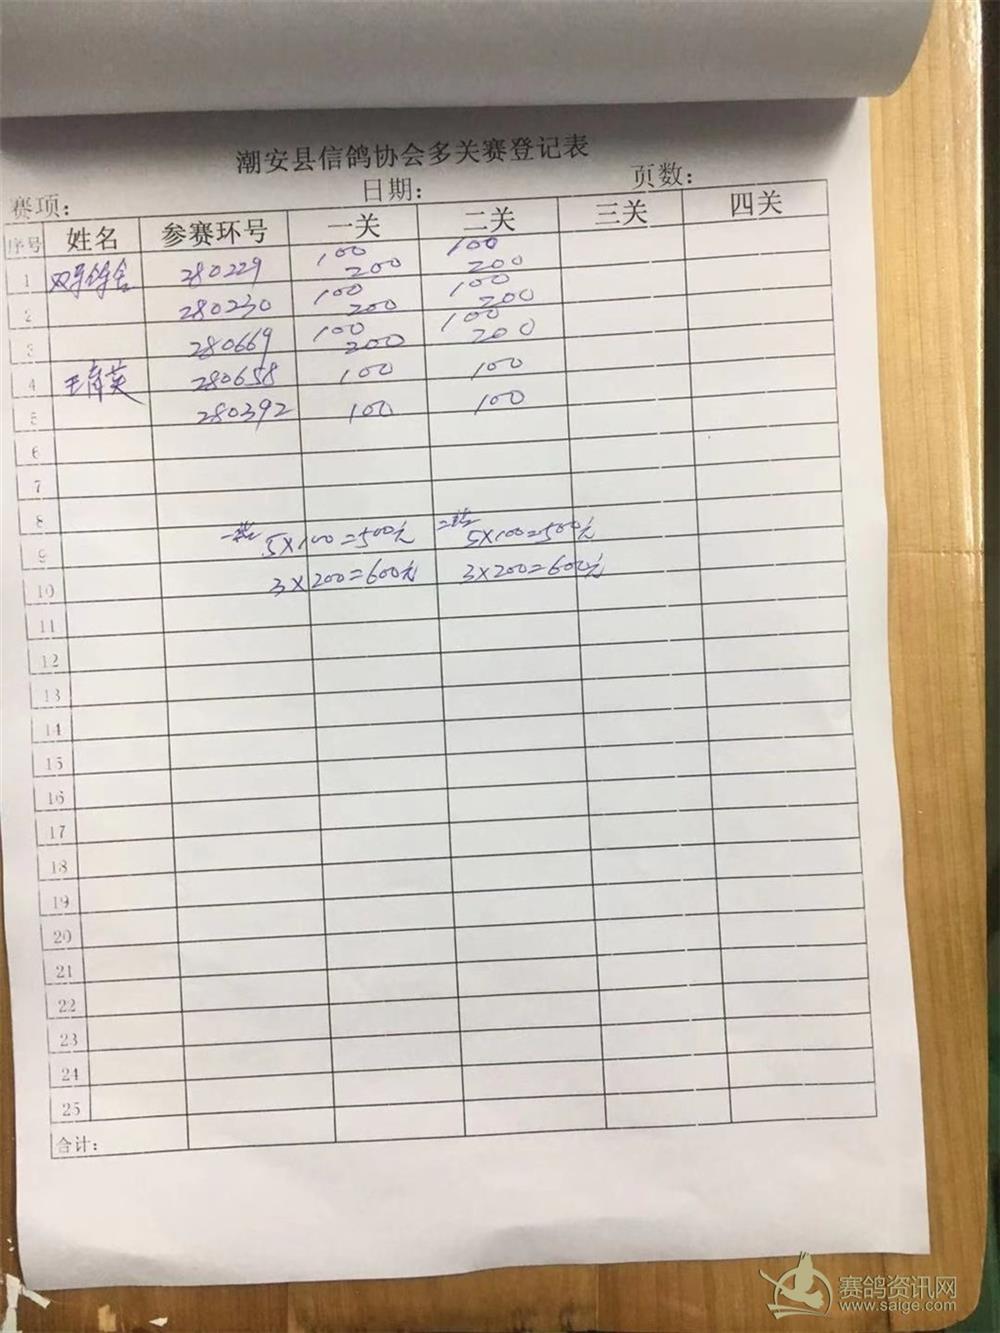 潮安县信鸽协会多关赛登记表
赛项: 日期: 页数:
序号 姓名 参赛环号 一关 二关 三关 四关
1 280229 100 200 100 200
2 280230 100 200 100 200
3 280669 100 200 100 200
4 280658 100 100
5 280392 100 100
6
7
8
9 5×100=500元 5×100=500元
10 3×200=600元 3×200=600元
11
12
13
14
15
16
17
18
19
20
21
22
23
24
25
合计:
赛鸽资讯网
www.saige.com